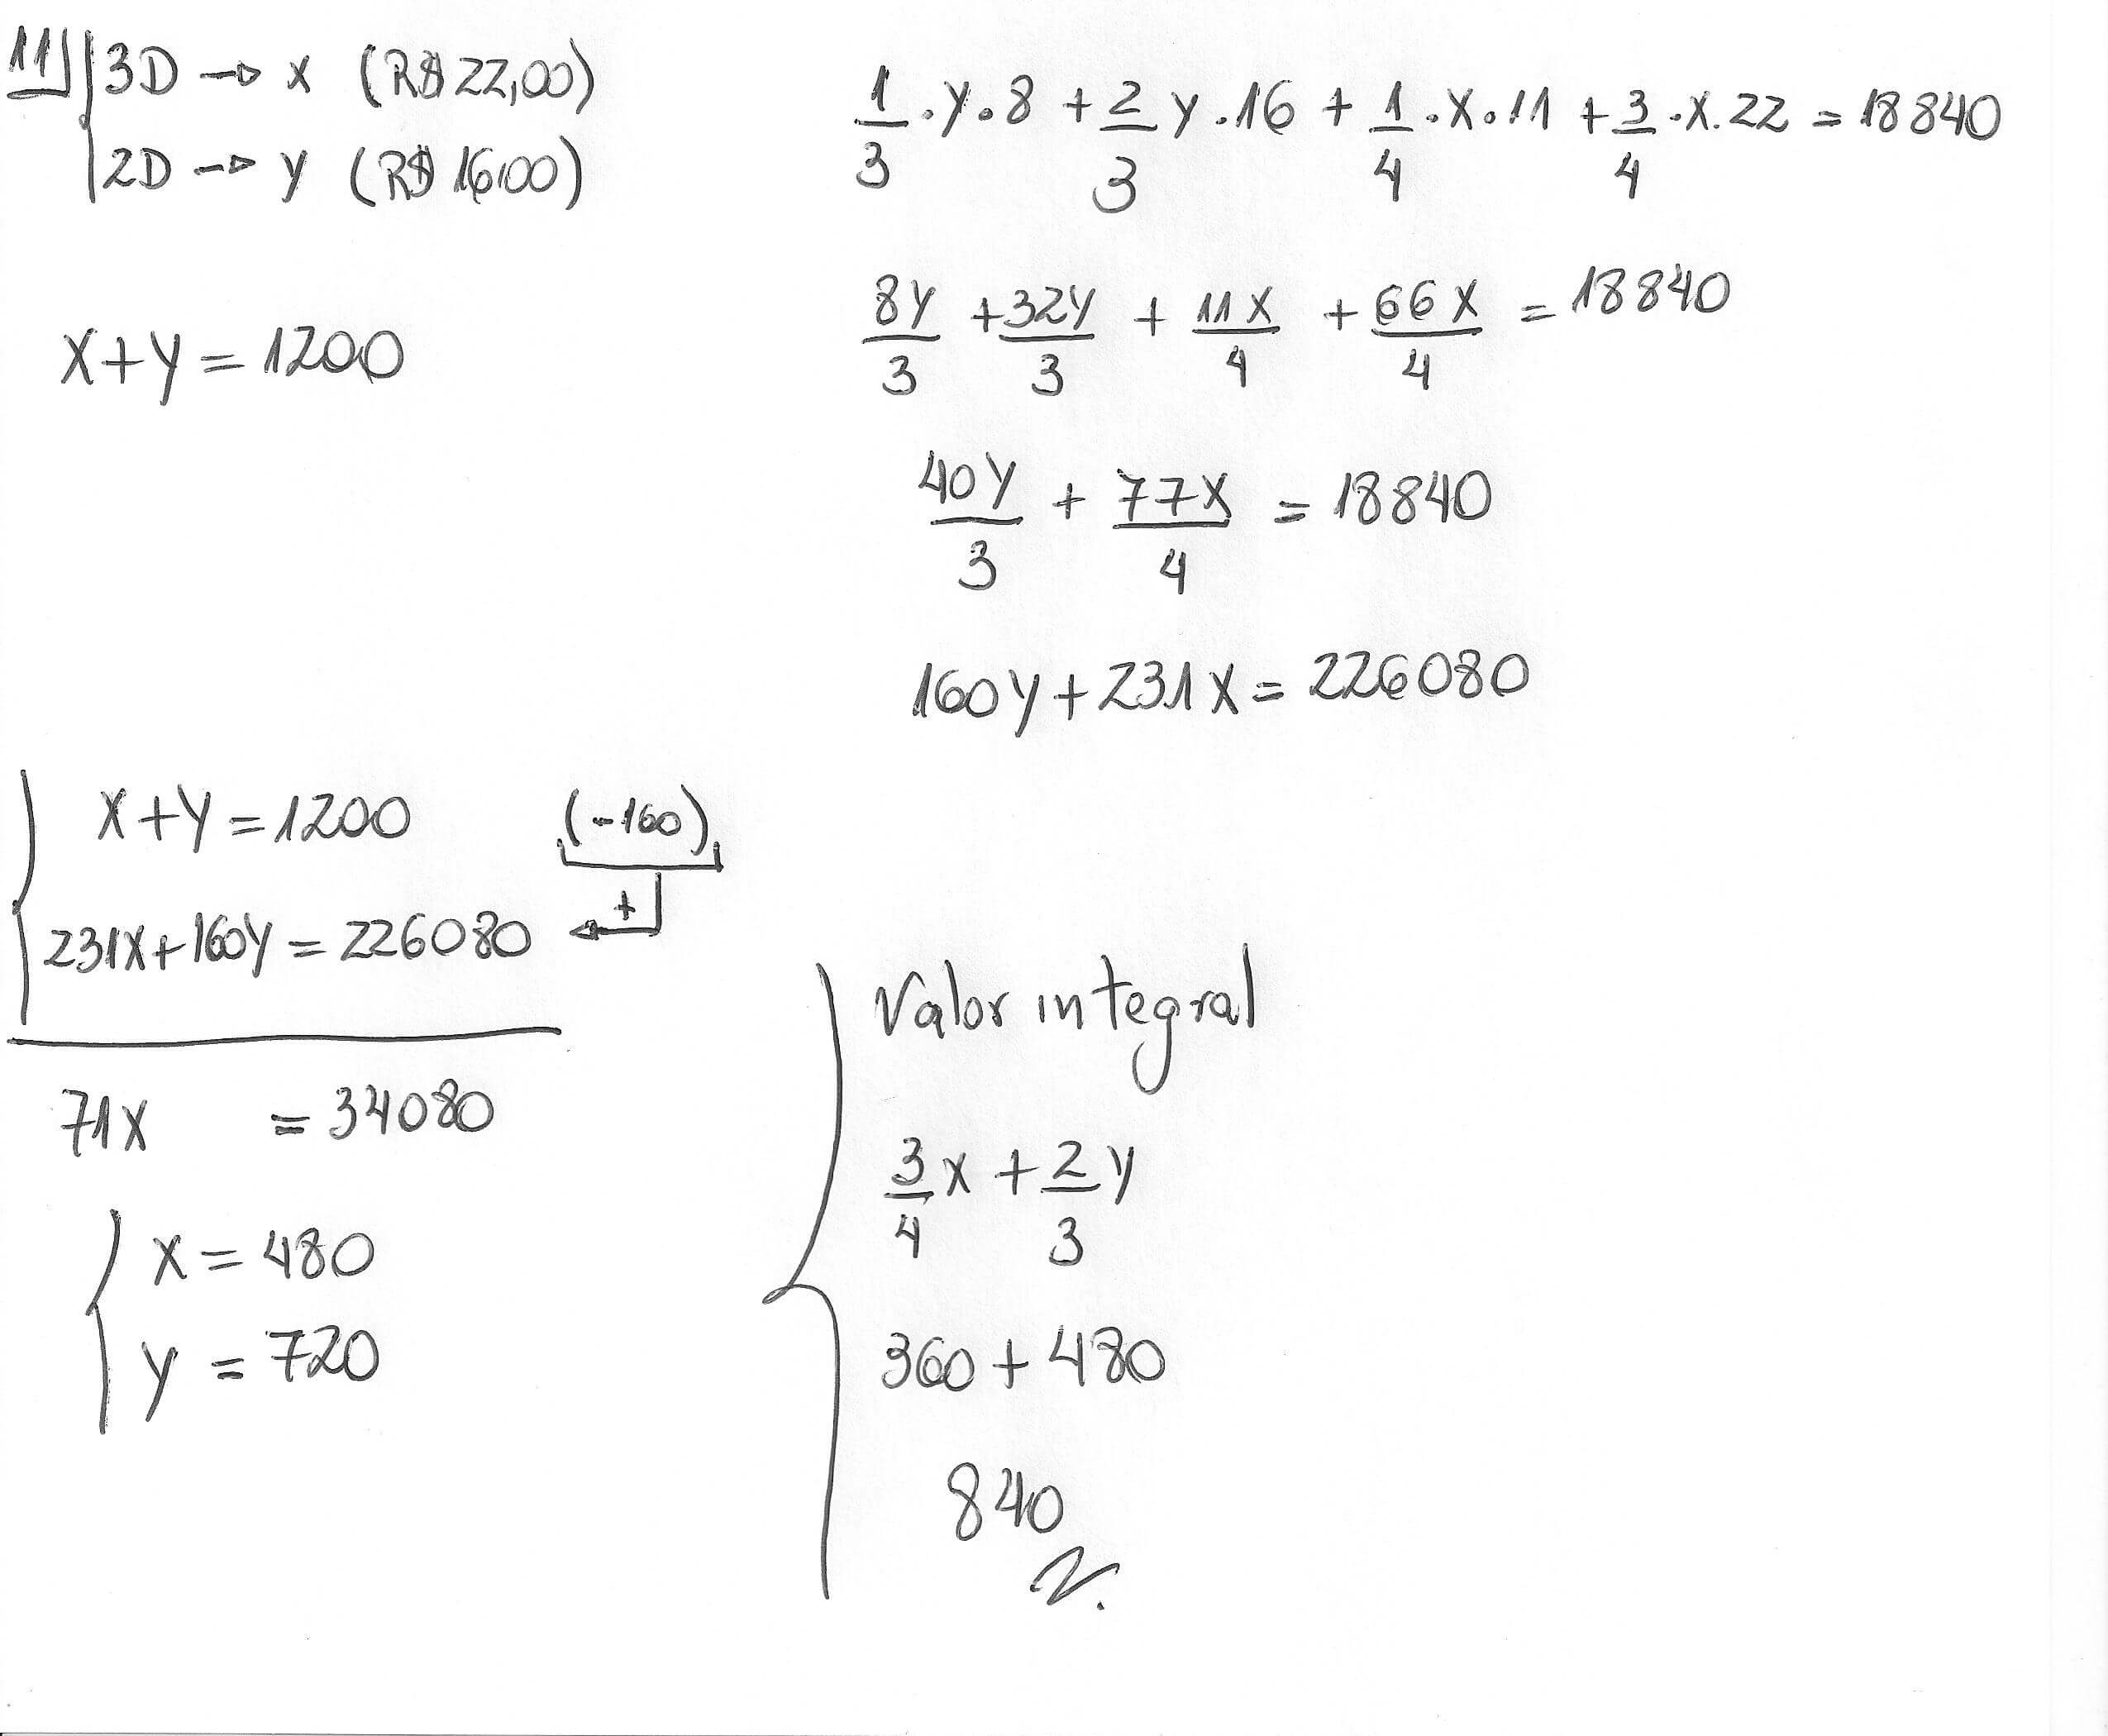 11) 3D → x (R$ 22,00)
2D → y (R$ 16,00)
x + y = 1200
1/3 . y . 8 + 2/3 y . 16 + 1/4 . x . 11 + 3/4 . x . 22 = 18840
8y/3 + 32y/3 + 11x/4 + 66x/4 = 18840
40y/3 + 77x/4 = 18840
160y + 231x = 226080
x + y = 1200 (-160)
231x + 160y = 226080 +
71x = 34080
x = 480
y = 720
Valor integral
3/4 x + 2/3 y
360 + 480
840